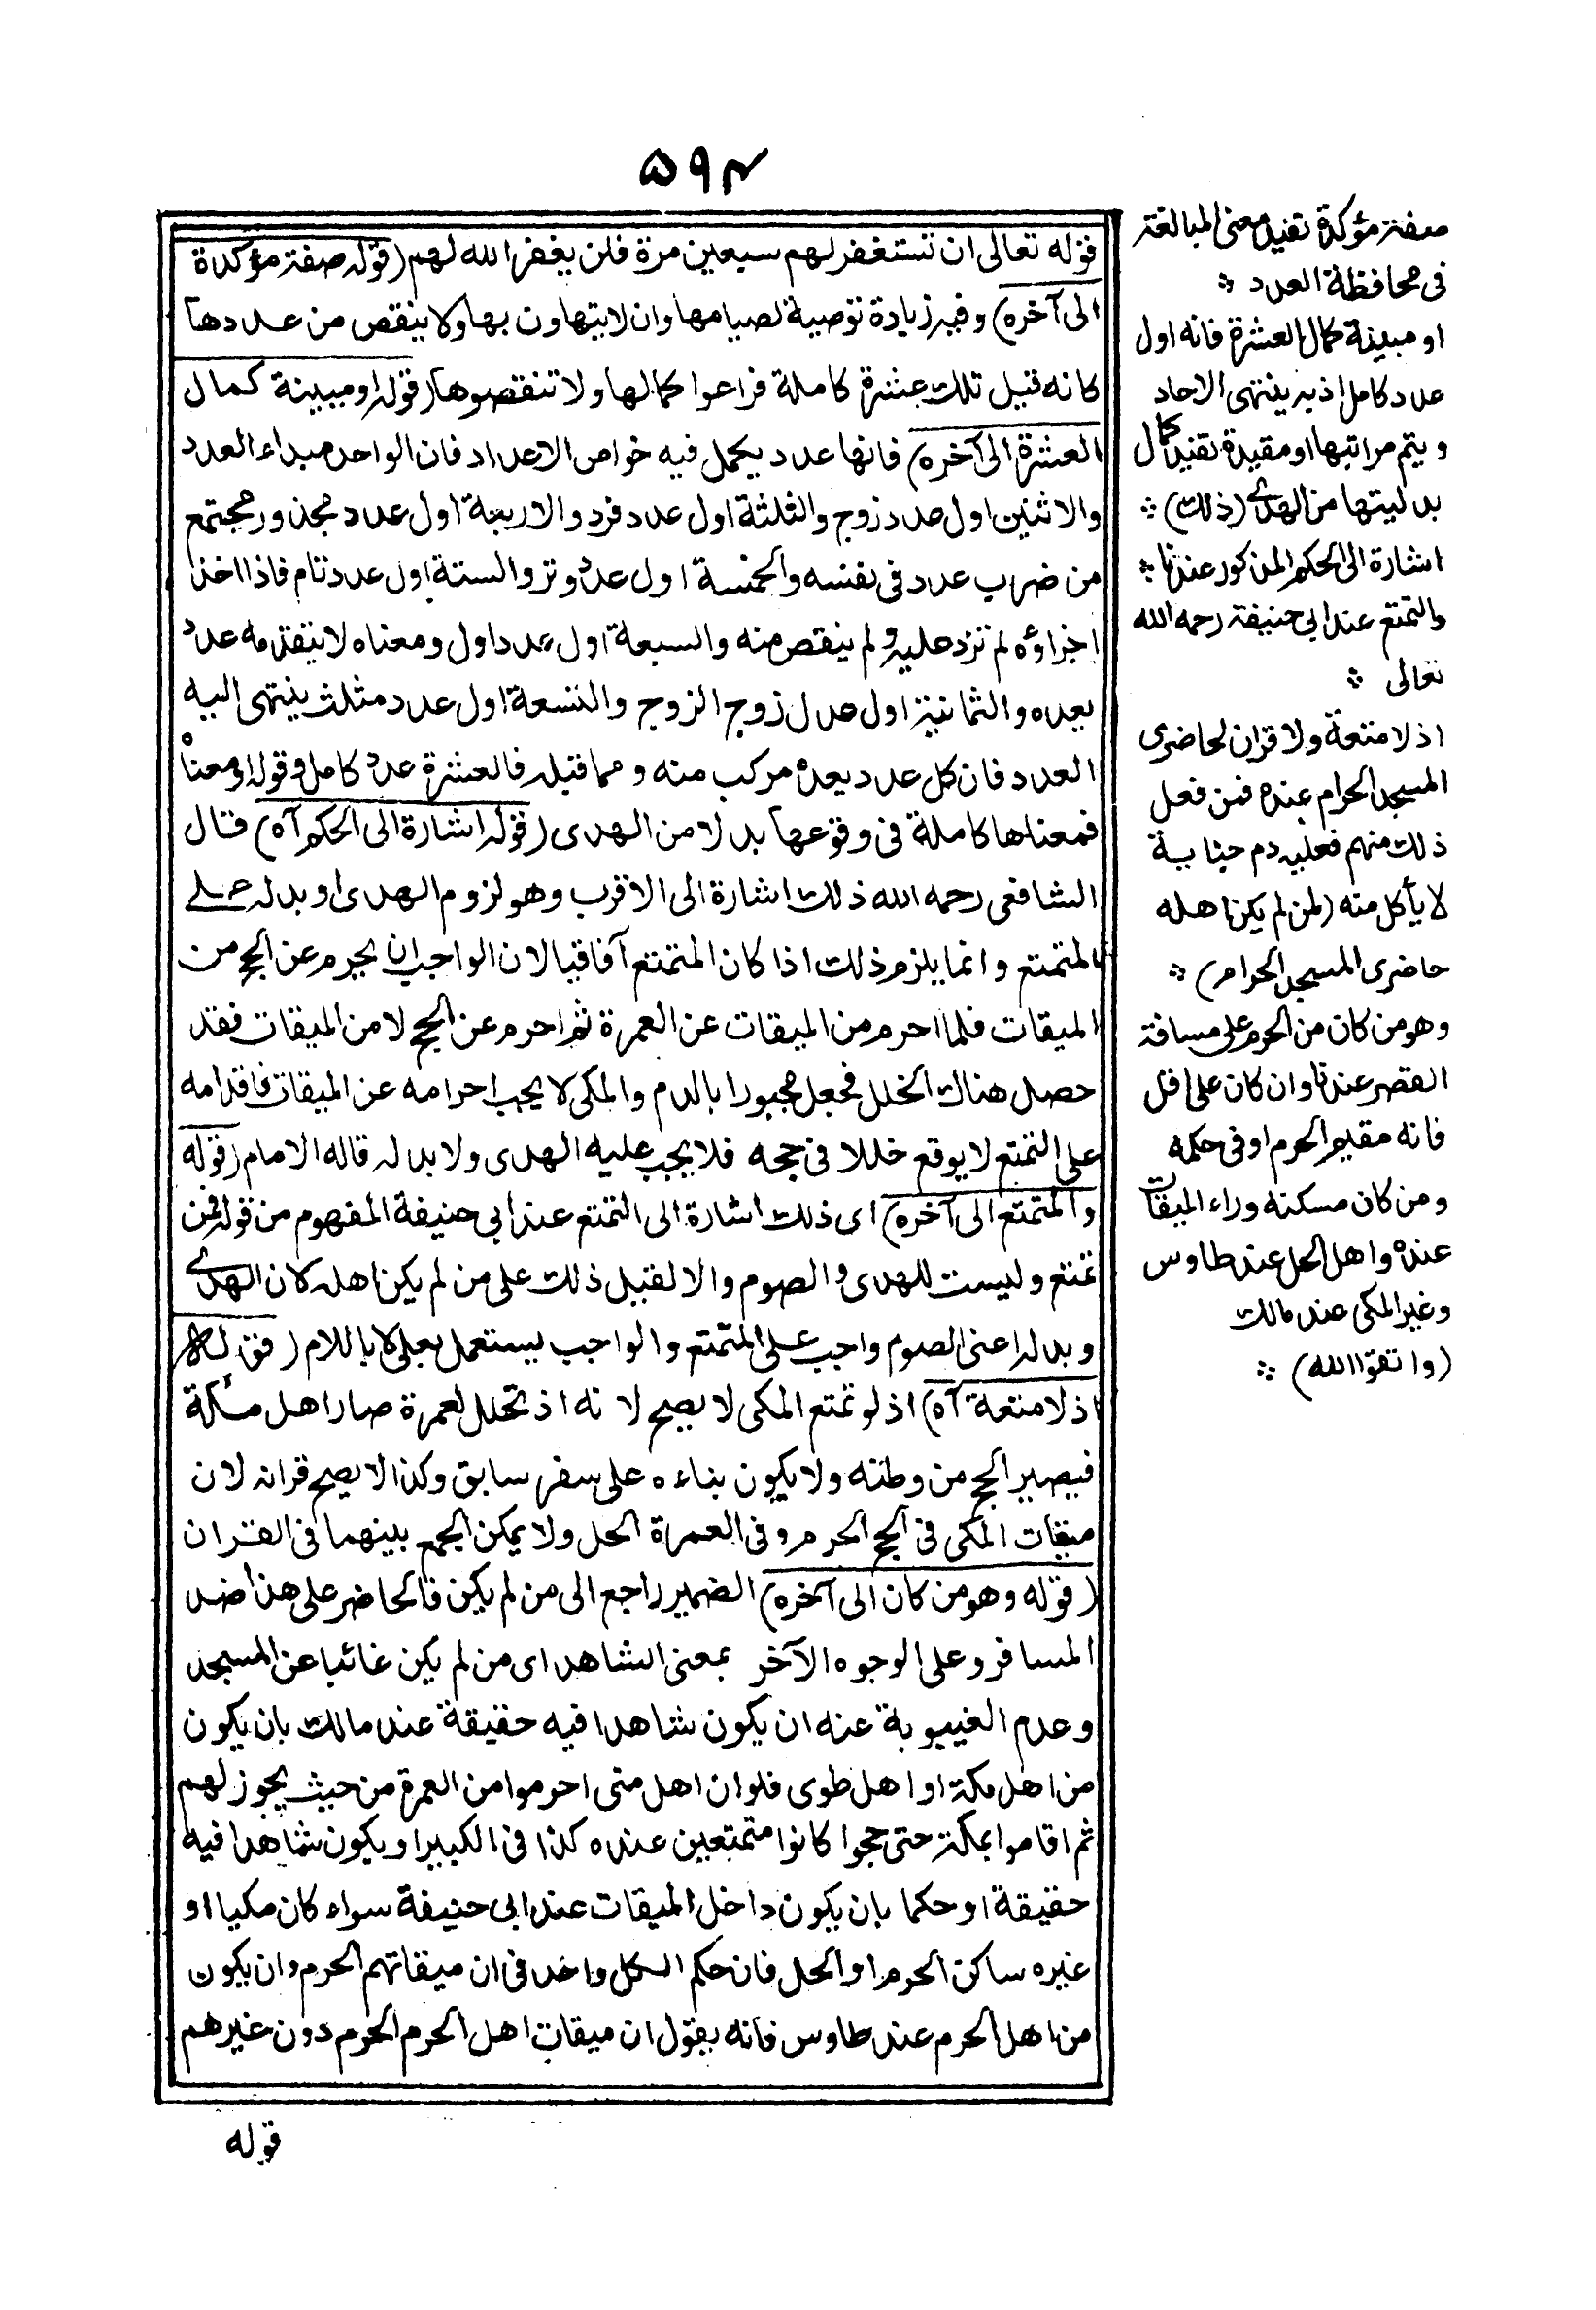 ۵۹۴
قوله تعالى ان تستغفر لهم سبعين مرة فلن يغفر الله لهم (قوله صفة مؤكدة
الى آخره) وفيه زيادة توصية لصيامها وان لا يتهاون بها ولا ينقص من عددها
كانه قيل تلك عشرة كاملة فراعوا كمالها ولا تنقصوها (قوله او مبينة كمال
العشرة الى آخره) فانها عدد يكمل فيه خواص الاعداد فان الواحد مبداء العدد
والاثنين اول عدد زوج والثلثة اول عدد فرد والاربعة اول عدد مجذور مجتمع
من ضرب عدد فى نفسه والخمسة اول عدد وتر والستة اول عدد تام فاذا اخذ
اجزاؤه لم تزد عليه ولم ينقص منه والسبعة اول عدد اول ومعناه لا يتقدمه عدد
بعده والثمانية اول عدد زوج الزوج والتسعة اول عدد مثلث ينتهى اليه
العدد فان كل عدد بعده مركب منه ومما قبله فالعشرة عدد كامل وقوله او معناه
فمعناها كاملة فى وقوعها بدلا من الهدى (قوله اشارة الى الحكم آه) قال
الشافعى رحمه الله ذلك اشارة الى الاقرب وهو لزوم الهدى او بدله على
المتمتع وانما يلزم ذلك اذا كان المتمتع آفاقيا لان الواجب ان يحرم عن الحج من
الميقات فلما احرم من الميقات عن العمرة ثم احرم عن الحج لا من الميقات فقد
حصل هناك الخلل فجعل مجبورا بالدم والمكى لا يجب احرامه عن الميقات فاقدامه
على التمتع لا يوقع خللا فى حجه فلا يجب عليه الهدى ولا بدله قاله الامام (قوله
والمتمتع الى آخره) اى ذلك اشارة الى التمتع عند ابى حنيفة المفهوم من قوله فمن
تمتع وليست للهدى والصوم والا لقيل ذلك على من لم يكن اهله كان الهدى
وبدله اعنى الصوم واجب على المتمتع والواجب يستعمل بعلى لا باللام (قوله
اذ لا متعة آه) اذ لو تمتع المكى لا يصح لانه اذ تحلل لعمرة صار اهل مكة
فيصير الحج من وطنه ولا يكون بناءه على سفر سابق وكذا لا يصح قرانه لان
ميقات المكى فى الحج الحرم وفى العمرة الحل ولا يمكن الجمع بينهما فى القران
(قوله وهو من كان الى آخره) الضمير راجع الى من لم يكن فالحاضر على هذا ضد
المسافر وعلى الوجوه الآخر بمعنى الشاهد اى من لم يكن غائبا عن المسجد
وعدم الغيبوبة عنه ان يكون شاهدا فيه حقيقة عند مالك بان يكون
من اهل مكة او اهل طوى فلو ان اهل منى احرموا من العمرة من حيث يجوز لهم
ثم اقاموا بمكة حتى حجوا كانوا متمتعين عنده كذا فى الكبير او يكون شاهدا فيه
حقيقة او حكما بان يكون داخل الميقات عند ابى حنيفة سواء كان مكيا او
غيره ساكن الحرم او الحل فان حكم الكل واحد فى ان ميقاتهم الحرم وان يكون
من اهل الحرم عند طاوس فانه يقول ان ميقات اهل الحرم الحرم دون غيرهم
قوله
صفة مؤكدة تفيد معنى المبالغة
فى محافظة العدد
او مبينة كمال العشرة فانه اول
عدد كامل اذ به ينتهى الاحاد
ويتم مراتبها او مقيدة تفيد كمال
بدليتها من الهدى (ذلك)
اشارة الى الحكم المذكور عندنا
والتمتع عند ابى حنيفة رحمه الله
تعالى
اذ لا متعة ولا قران لحاضرى
المسجد الحرام عنده فمن فعل
ذلك منهم فعليه دم جناية
لا يأكل منه (لمن لم يكن اهله
حاضرى المسجد الحرام)
وهو من كان من الحرم على مسافة
القصر عندنا وان كان على اقل
فانه مقيم الحرم او فى حكمه
ومن كان مسكنه وراء الميقات
عنده واهل الحل عند طاوس
وغير المكى عند مالك
(واتقوا الله)